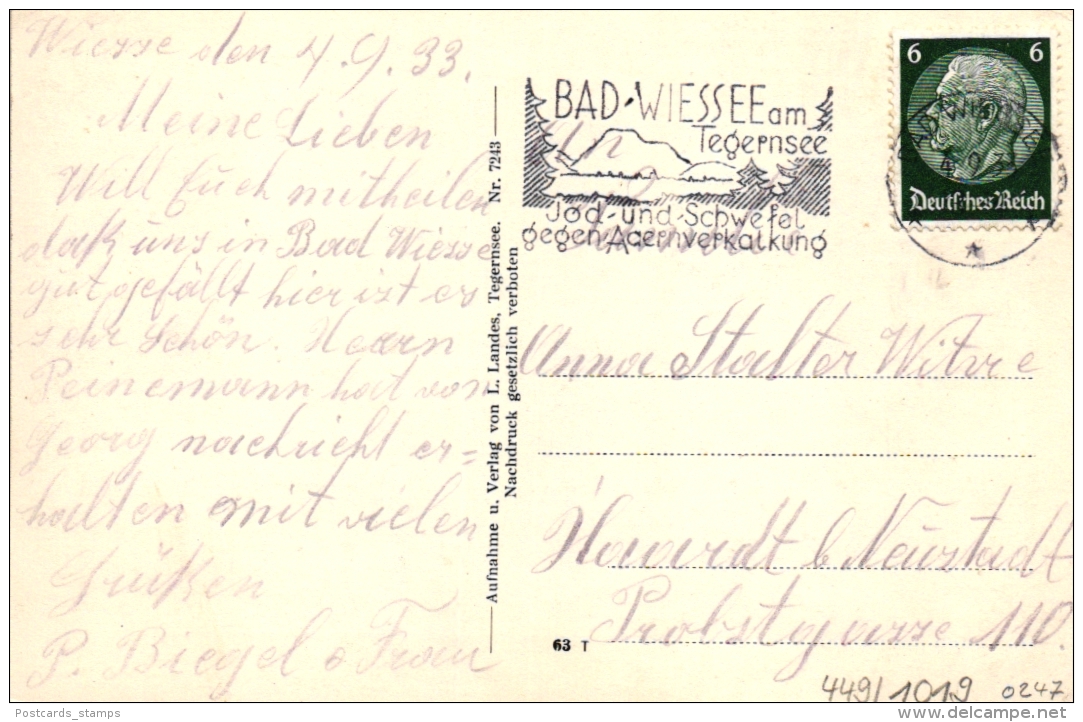 Wiesse den 4.9.33.
Meine Lieben
Will Euch mittheilen
daß uns in Bad Wiesse
gut gefällt hier ist es
sehr Schön. Hearn
Peinemann hat von
Georg nachricht er=
halten mit vielen
Grüßen
P. Biegel o Frau
Aufnahme u. Verlag von L. Landes, Tegernsee. Nr. 7243
Nachdruck gesetzlich verboten
BAD-WIESSEE am
Tegernsee
Jod-und-Schwefel
gegen Adernverkalkung
6 6
Deutsches Reich
An
Anna Stalter Witwe
Haardt b Neustadt
Probstgasse 110.
63 T
449/1019 0247
Postcards_stamps
delcampe.net